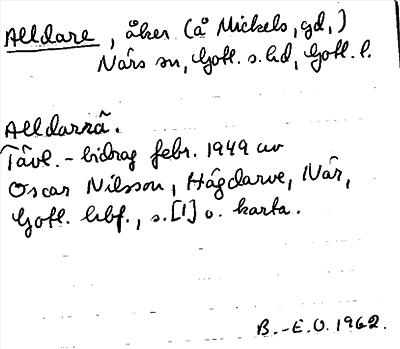 Alldare, åker (å Mickels, gd,)
Närs sn, Gotl. s. hd, Gotl. l.
Alldarrå.
Tävl.-bidrag febr. 1949 av
Oscar Nilsson, Hägdarve, När,
Gotl. hbf., s. [1] o. karta.
B.-E.O. 1962.